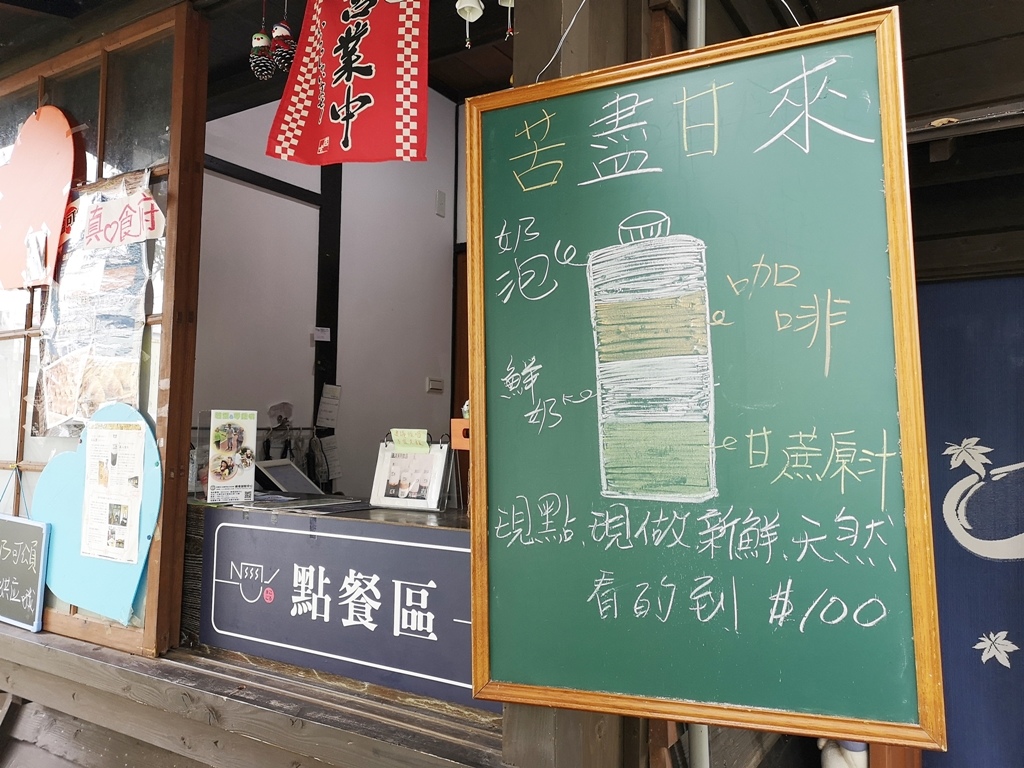 營業中
真♡食府
苦盡甘來
奶泡
咖啡
鮮奶
甘蔗原汁
現點、現做新鮮、天然
看的到 $100
點餐區